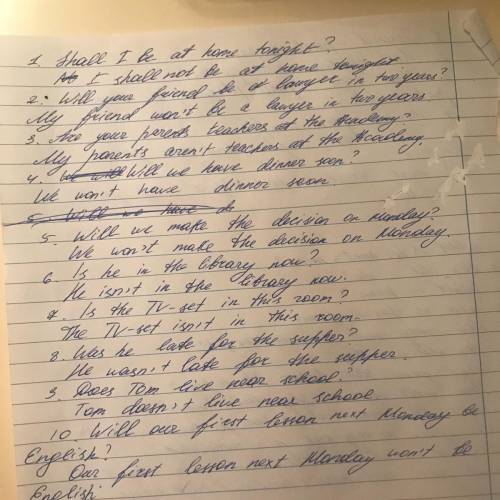 1. Shall I be at home tonight?
I shall not be at home tonight.
2. Will your friend be a lawyer in two years?
My friend won't be a lawyer in two years
3. Are your parents teachers at the Academy?
My parents aren't teachers at the Academy.
4. Will we have dinner soon?
We won't have dinner soon.
5. Will we have di
5. Will we make the decision on Monday?
We won't make the decision on Monday.
6. Is he in the library now?
He isn't in the library now.
7. Is the TV-set in this room?
The TV-set isn't in this room.
8. Was he late for the supper?
He wasn't late for the supper.
9. Does Tom live near school?
Tom doesn't live near school
10 Will our first lesson next Monday be
English?
Our first lesson next Monday won't be
English.